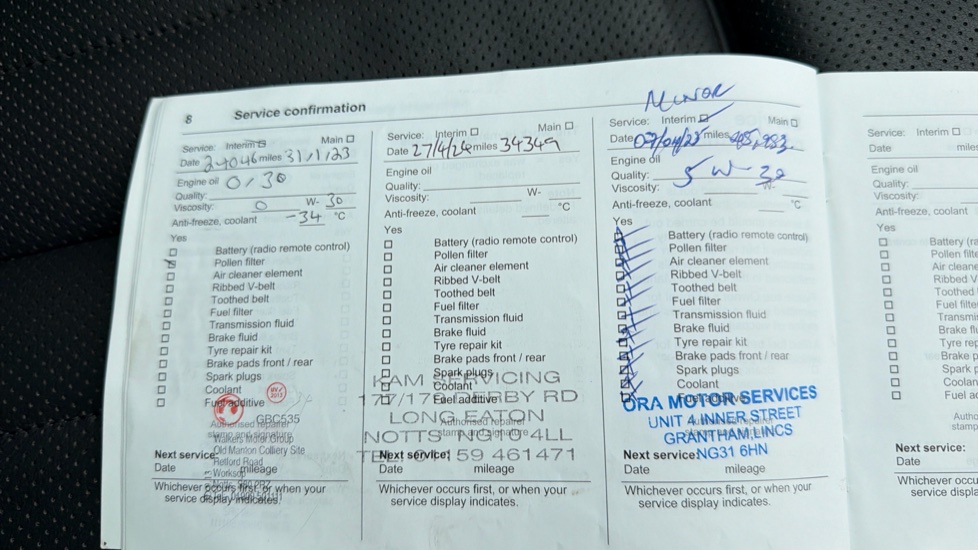 8 Service confirmation
Service: Interim Main
Date 24046 miles 31/1/23
Engine oil 0/30
Quality:
Viscosity: 0 W- 30
Anti-freeze, coolant -34 °C
Yes
Battery (radio remote control)
Pollen filter
Air cleaner element
Ribbed V-belt
Toothed belt
Fuel filter
Transmission fluid
Brake fluid
Tyre repair kit
Brake pads front / rear
Spark plugs
Coolant
Fuel additive
GBC535
Authorised repairer
stamp and signature
Walkers Motor Group
Old Manton Colliery Site
Next service:
Retford Road
Date mileage
Worksop
Whichever occurs first, or when your
service display indicates.
Service: Interim Main
Date 27/4/24 miles 34349
Engine oil
Quality:
Viscosity: W-
Anti-freeze, coolant °C
Yes
Battery (radio remote control)
Pollen filter
Air cleaner element
Ribbed V-belt
Toothed belt
Fuel filter
Transmission fluid
Brake fluid
Tyre repair kit
Brake pads front / rear
Spark plugs
Coolant
Fuel additive
KAM SERVICING
RBY RD
LONG EATON
Authorised repairer
NOTTS NG10 4LL
stamp and signature
Next service: 59 461471
Date mileage
Whichever occurs first, or when your
service display indicates.
MINOR
Service: Interim Main
Date miles
Engine oil
Quality: 5 W-30
Viscosity: W-
Anti-freeze, coolant °C
Yes
Battery (radio remote control)
Pollen filter
Air cleaner element
Ribbed V-belt
Toothed belt
Fuel filter
Transmission fluid
Brake fluid
Tyre repair kit
Brake pads front / rear
Spark plugs
Coolant
Fuel additive
ORA MOTOR SERVICES
UNIT 4 INNER STREET
GRANTHAM LINCS
Next service: NG31 6HN
Date mileage
Whichever occurs first, or when your
service display indicates.
Service: Interim
Date miles
Engine oil
Quality:
Viscosity:
Anti-freeze, coolant
Yes
Battery (ra
Pollen filte
Air cleane
Ribbed V
Toothed
Fuel filte
Transmi
Brake fl
Tyre rep
Brake p
Spark p
Coolant
Fuel ad
Autho
stamp
Next service:
Date
Whichever occu
service displa